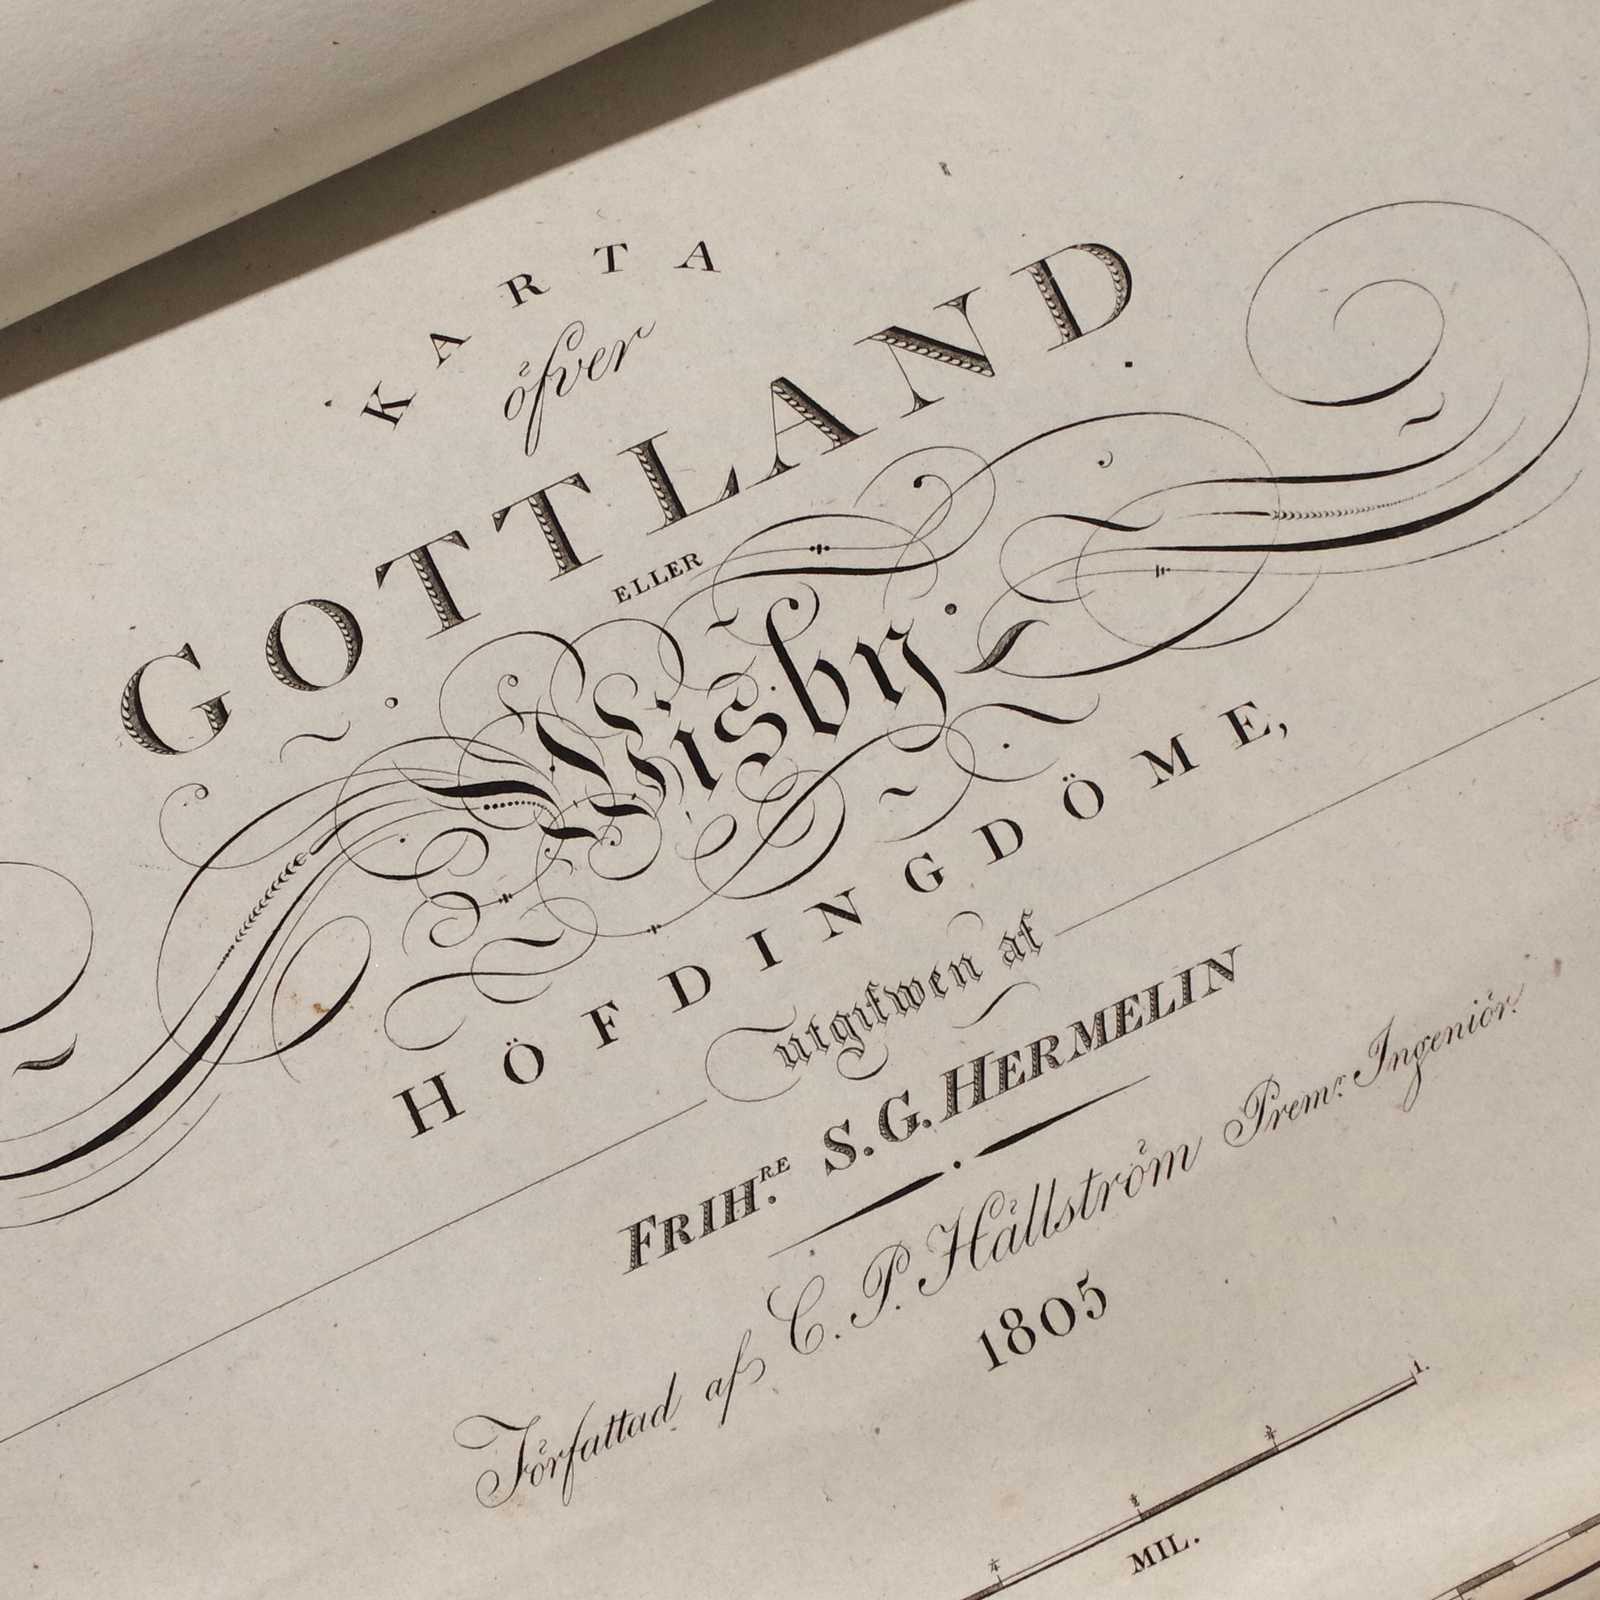 KARTA
öfver
GOTTLAND
ELLER
Wisby
HÖFDINGDÖME,
utgifwen af
FRIH.RE S.G. HERMELIN
Författad af C. P. Hällström Prem.r Ingeniör.
1805
1/4 1/2 3/4 1.
MIL.